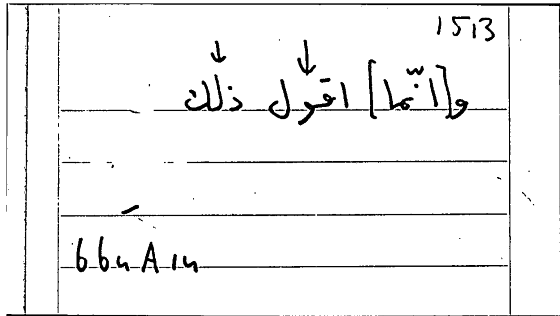 1513
و[انّما] اقول ذلك
66u A 14